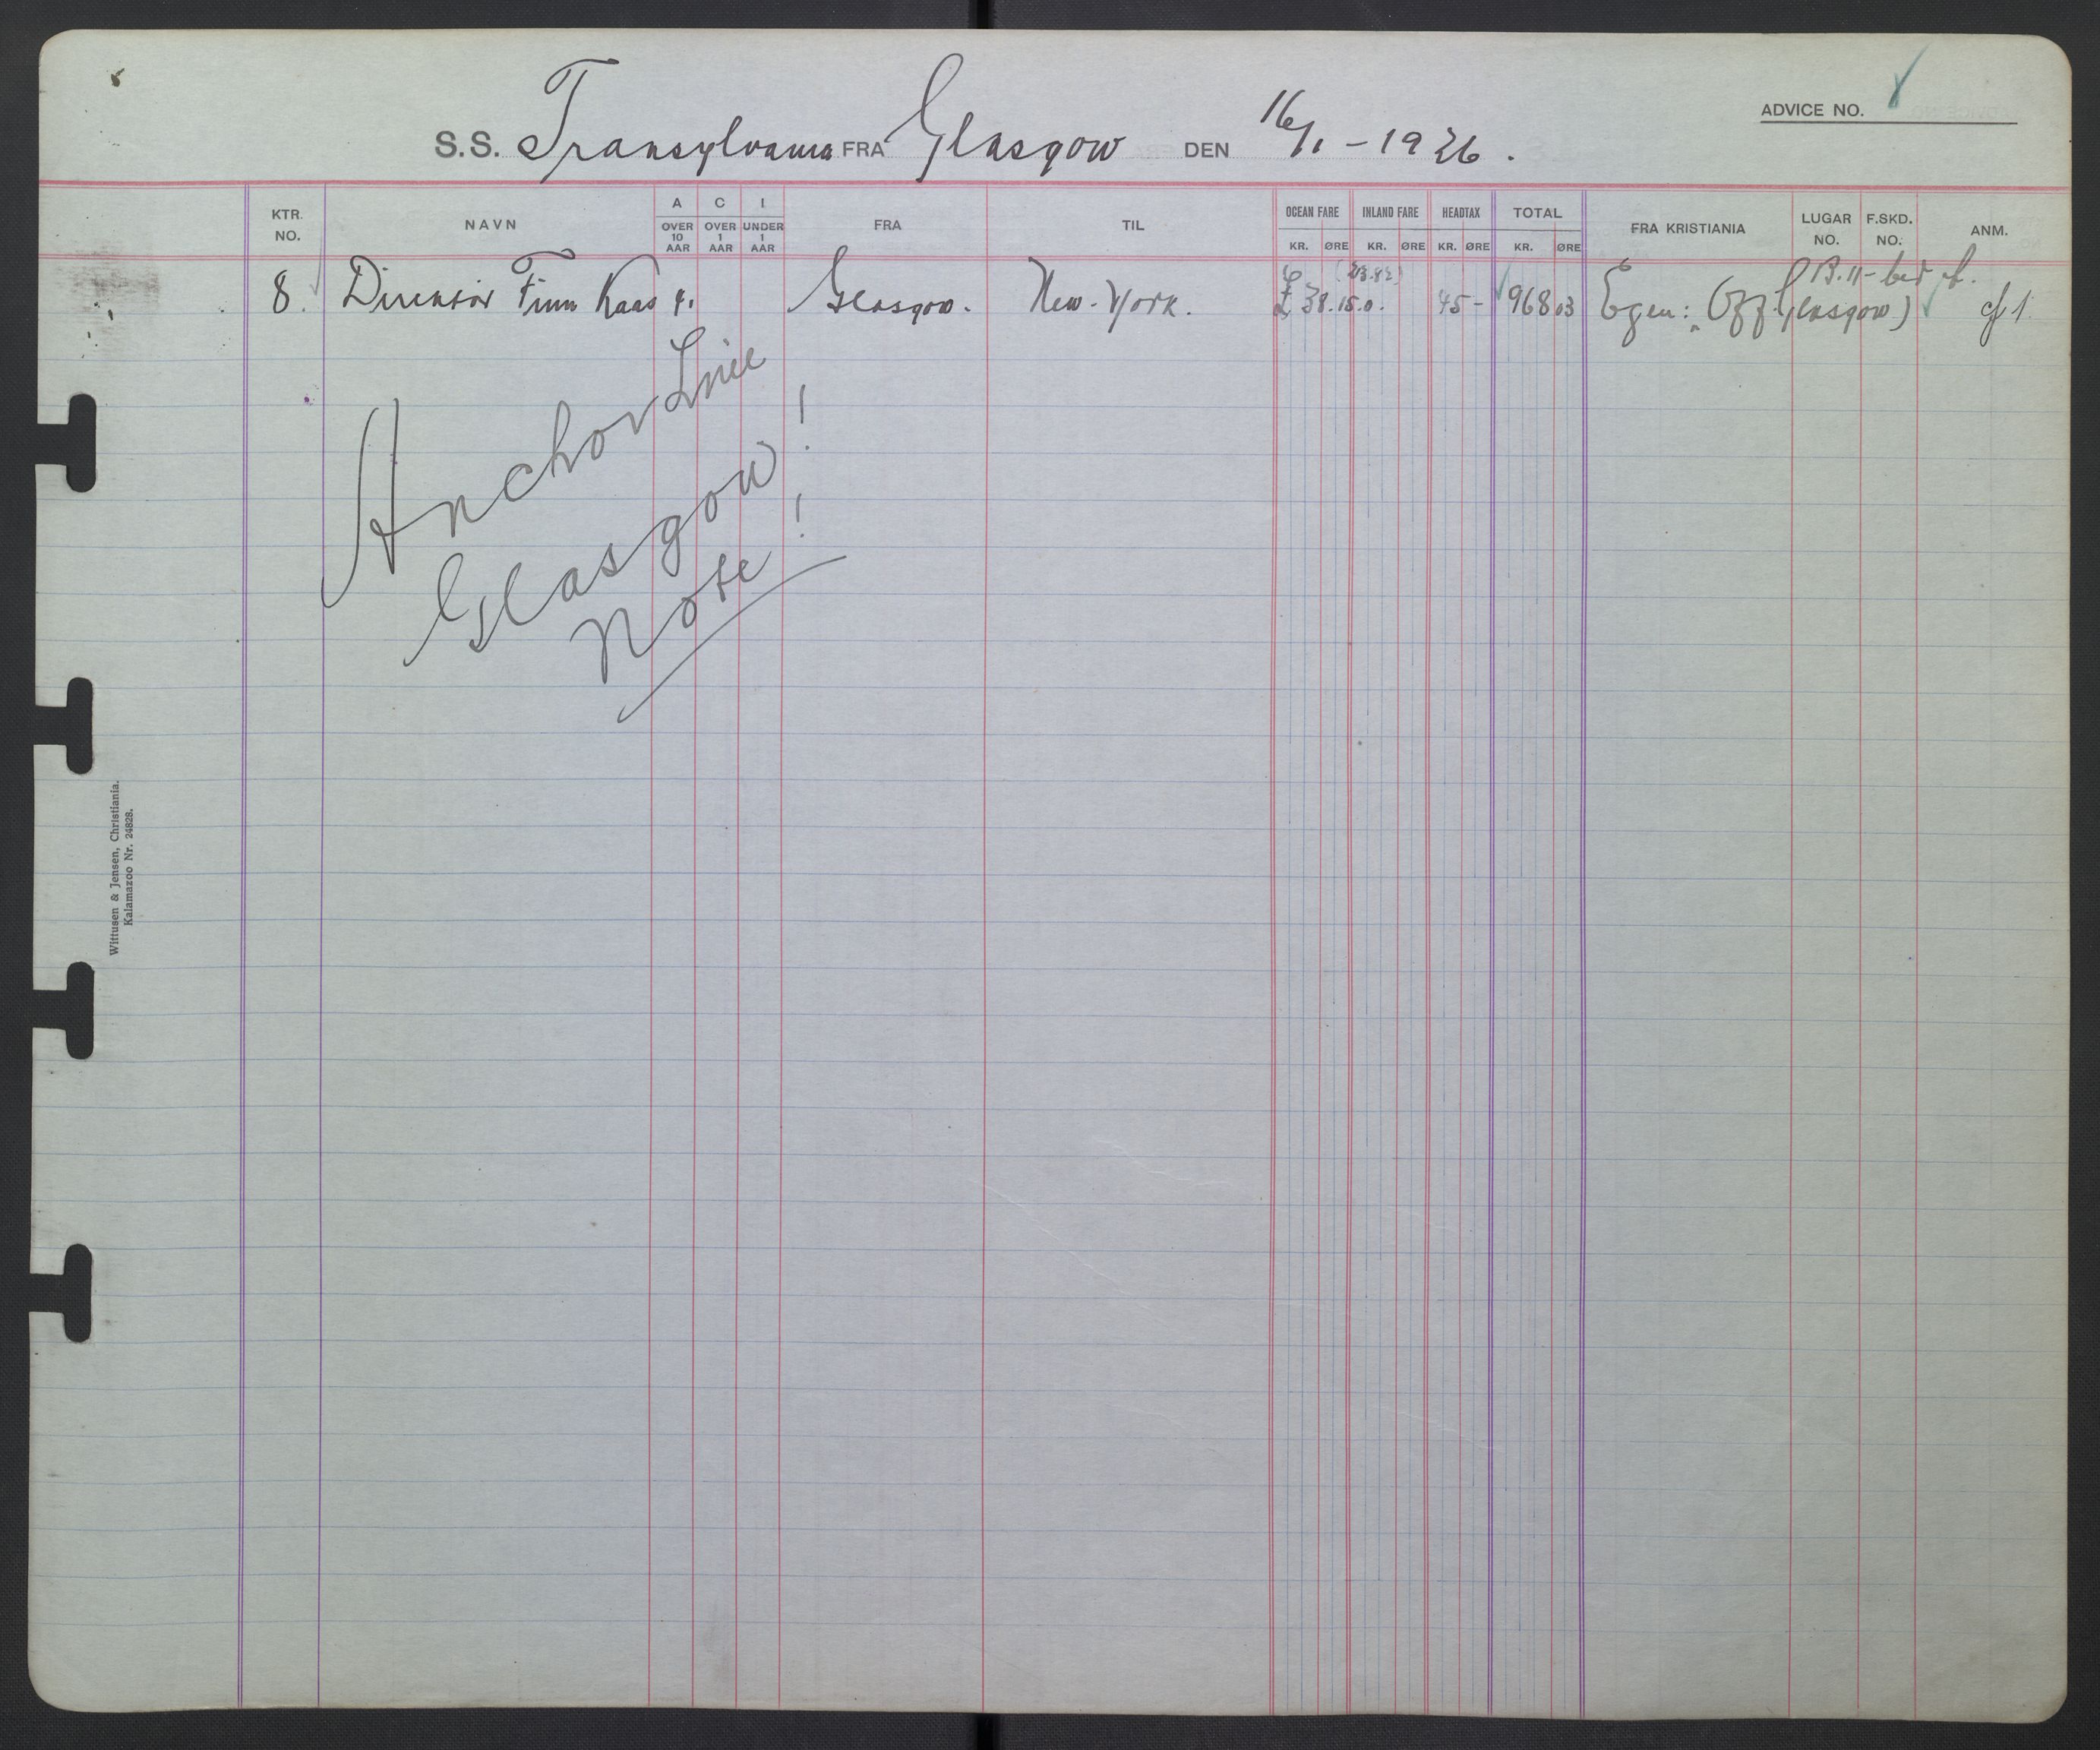 ADVICE NO.
S.S. Transylvania FRA Glasgow DEN 16/1 - 1926.
KTR. NO. NAVN A OVER 10 AAR C OVER 1 AAR I UNDER 1 AAR FRA TIL OCEAN FARE KR. ØRE INLAND FARE KR. ØRE HEADTAX KR. ØRE TOTAL KR. ØRE FRA KRISTIANIA LUGAR NO. F.SKD. NO. ANM.
(23.82)
8. Direktør Finn Kaas Glasgow. New-York. £ 38.15.0. 45- 968 03 Egen: (Off. Glasgow)
Anchor Line
Glasgow!
Note!
Wittusen & Jensen, Christiania.
Kalamazoo Nr. 24828.